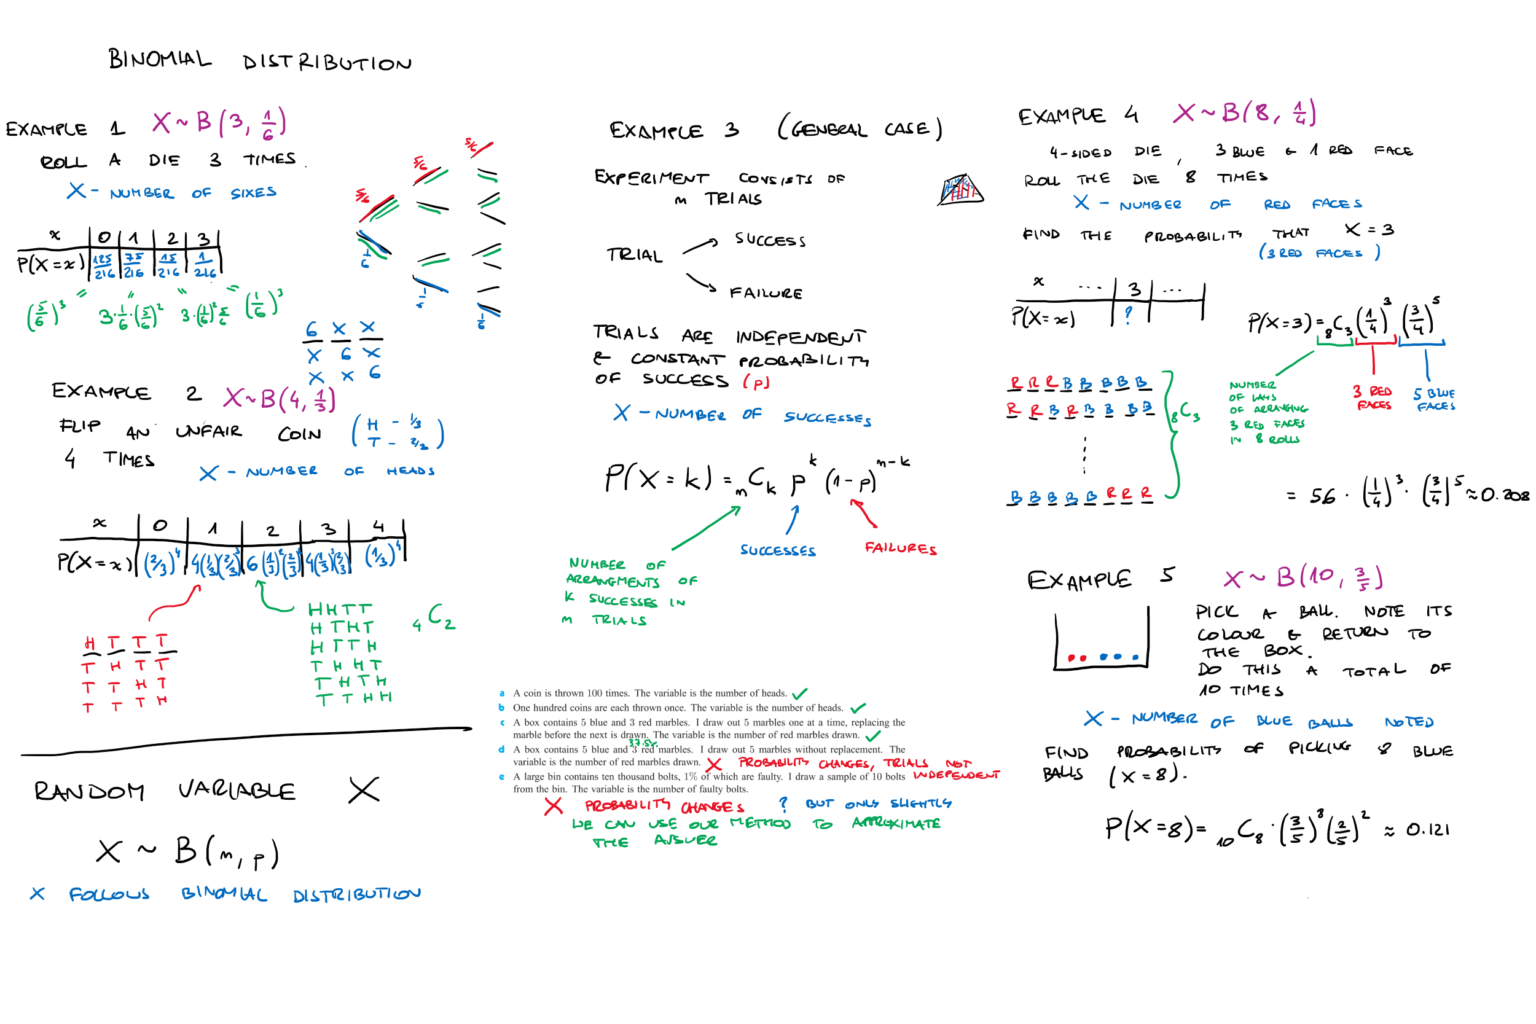 BINOMIAL DISTRIBUTION
EXAMPLE 1 X ~ B(3, 1/6)
ROLL A DIE 3 TIMES.
X - NUMBER OF SIXES
x | 0 | 1 | 2 | 3
P(X=x) | 125/216 | 75/216 | 15/216 | 1/216
(5/6)³ 3·1/6·(5/6)² 3·(1/6)²·5/6 (1/6)³
5/6 5/6 5/6
1/6 1/6 1/6
6 X X
X 6 X
X X 6
EXAMPLE 2 X~B(4, 1/3)
FLIP AN UNFAIR COIN (H - 1/3
T - 2/3)
4 TIMES
X - NUMBER OF HEADS
x | 0 | 1 | 2 | 3 | 4
P(X=x) | (2/3)⁴ | 4(1/3)(2/3)³ | 6(1/3)²(2/3)² | 4(1/3)³(2/3) | (1/3)⁴
H T T T
T H T T
T T H T
T T T H
HHTT
HTHT
HTTH
THHT
THTH
TTHH
₄C₂
RANDOM VARIABLE X
X ~ B(n, p)
X FOLLOWS BINOMIAL DISTRIBUTION
EXAMPLE 3 (GENERAL CASE)
EXPERIMENT CONSISTS OF
n TRIALS
TRIAL
SUCCESS
FAILURE
TRIALS ARE INDEPENDENT
& CONSTANT PROBABILITY
OF SUCCESS (p)
X - NUMBER OF SUCCESSES
P(X = k) = ₙCₖ pᵏ (1-p)ⁿ⁻ᵏ
SUCCESSES
FAILURES
NUMBER OF
ARRANGMENTS OF
k SUCCESSES IN
n TRIALS
a A coin is thrown 100 times. The variable is the number of heads. ✓
b One hundred coins are each thrown once. The variable is the number of heads. ✓
c A box contains 5 blue and 3 red marbles. I draw out 5 marbles one at a time, replacing the
marble before the next is drawn. The variable is the number of red marbles drawn. ✓
37.5%
d A box contains 5 blue and 3 red marbles. I draw out 5 marbles without replacement. The
variable is the number of red marbles drawn. X PROBABILITY CHANGES, TRIALS NOT
INDEPENDENT
e A large bin contains ten thousand bolts, 1% of which are faulty. I draw a sample of 10 bolts
from the bin. The variable is the number of faulty bolts.
X PROBABILITY CHANGES ? BUT ONLY SLIGHTLY
WE CAN USE OUR METHOD TO APPROXIMATE
THE ANSWER
EXAMPLE 4 X ~ B(8, 1/4)
4-SIDED DIE, 3 BLUE & 1 RED FACE
ROLL THE DIE 8 TIMES
X - NUMBER OF RED FACES
FIND THE PROBABILITY THAT X = 3
(3 RED FACES)
x | ... | 3 | ...
P(X=x) | ?
P(X=3) = ₈C₃ (1/4)³ (3/4)⁵
R R R B B B B B
R R B R B B B B
B B B B B R R R
₈C₃
NUMBER
OF WAYS
OF ARRANGING
3 RED FACES
IN 8 ROLLS
3 RED
FACES
5 BLUE
FACES
= 56 · (1/4)³ · (3/4)⁵ ≈ 0.208
EXAMPLE 5 X ~ B(10, 3/5)
PICK A BALL. NOTE ITS
COLOUR & RETURN TO
THE BOX.
DO THIS A TOTAL OF
10 TIMES
X - NUMBER OF BLUE BALLS NOTED
FIND PROBABILITY OF PICKING 8 BLUE
BALLS (X=8).
P(X=8) = ₁₀C₈ · (3/5)⁸ (2/5)² ≈ 0.121